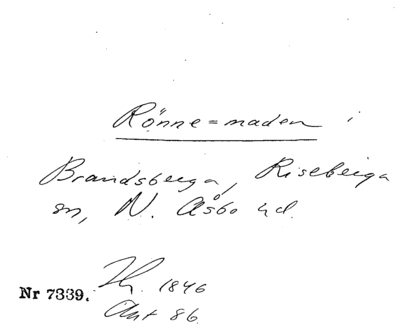 Rönne=maden i
Brandsberga, Riseberga
sn, N. Åsbo hd.
1846
Nr 7339.
Akt 86